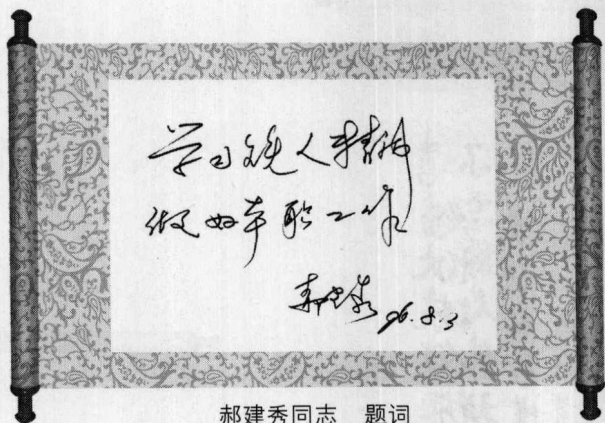 学习铁人精神
做好本职工作
郝建秀 96.8.3
郝建秀同志 题词